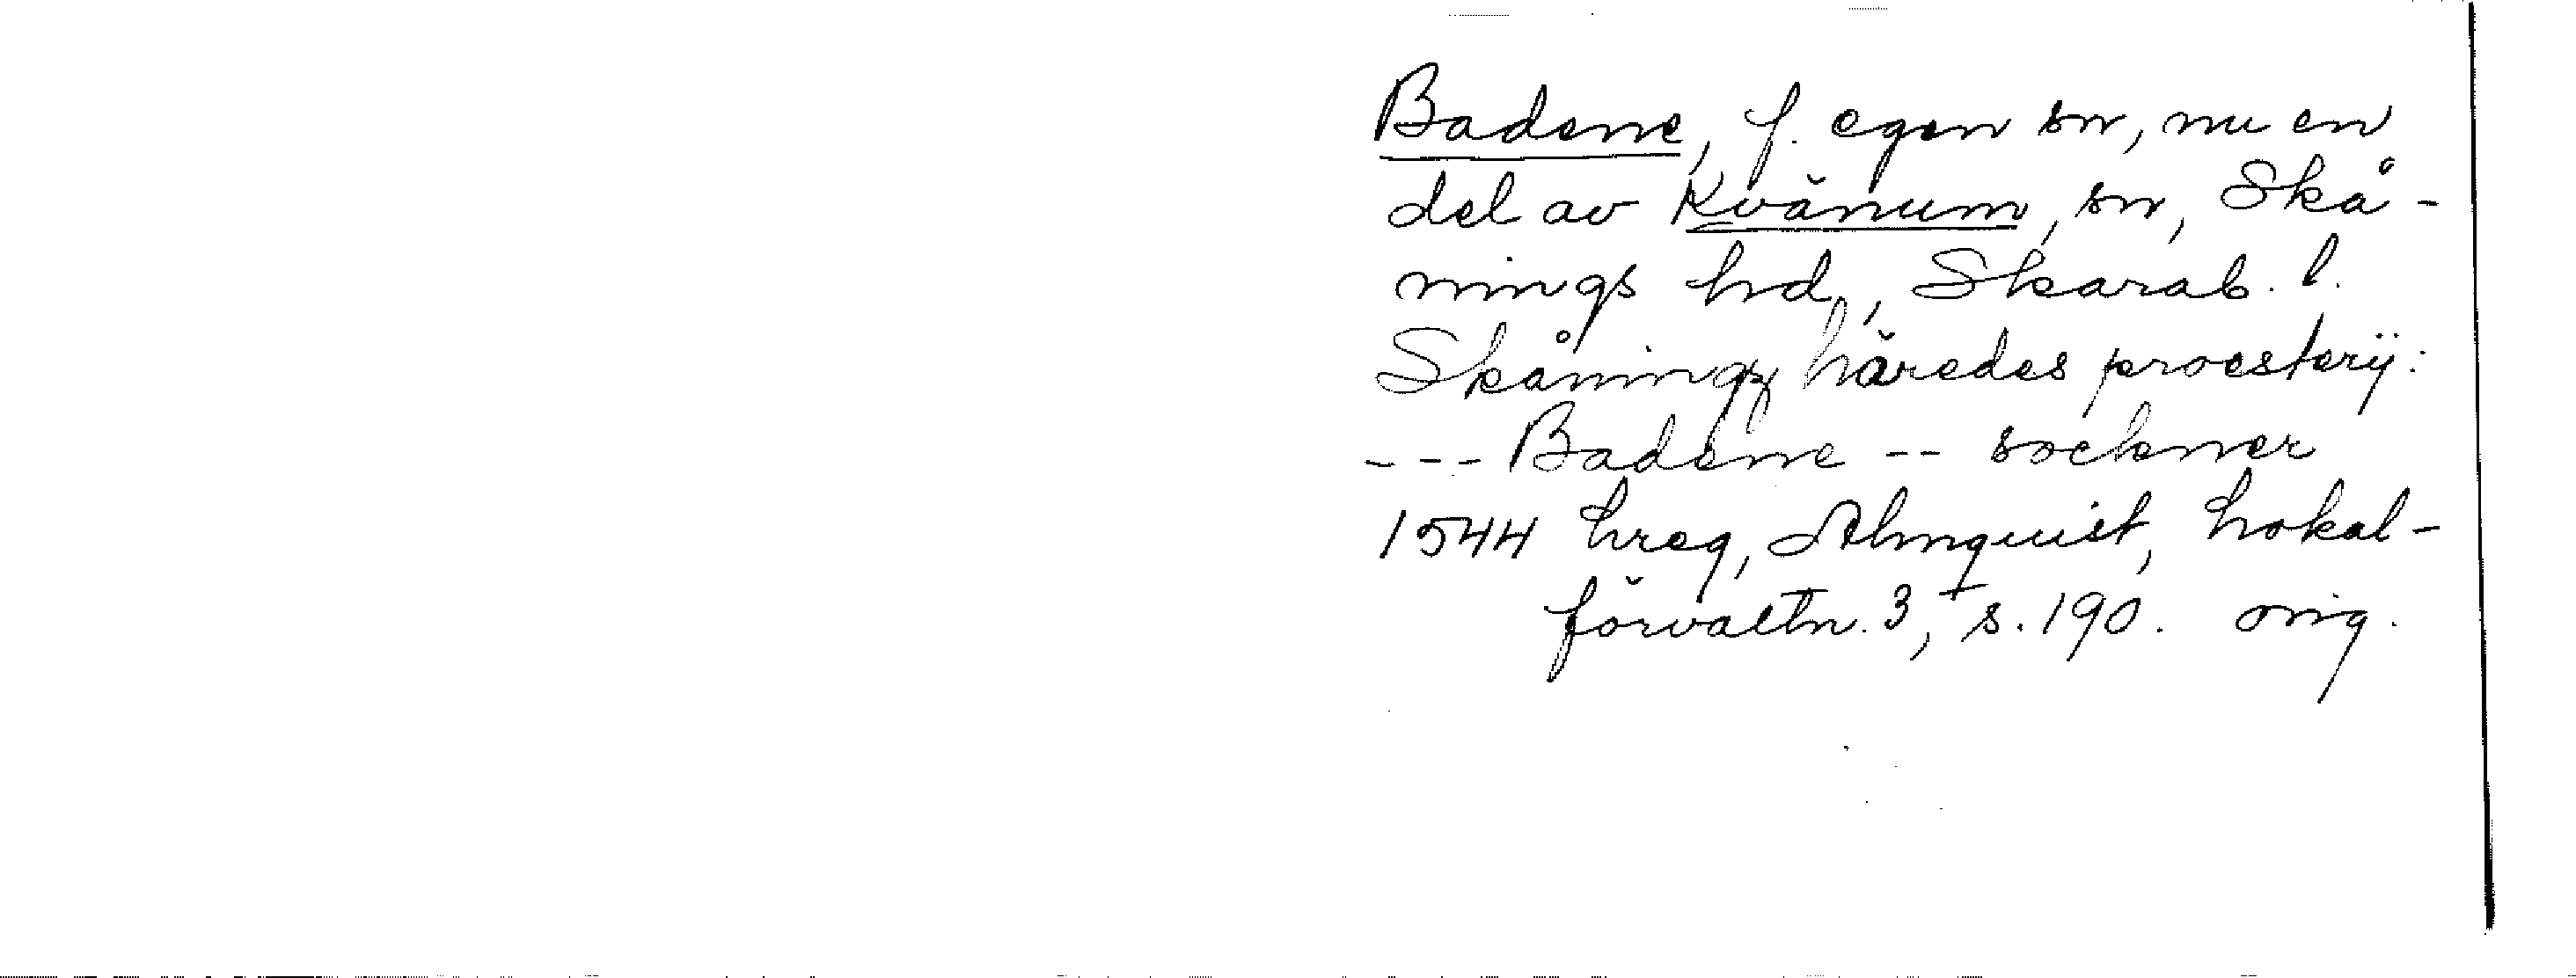 Badene, f. egen sn, nu en
del av Kvänum, sn, Skå-
nings hd, Skarab. l.
Skåningz häredes proesterij:
--- Badene -- sockner
1544 hreg, Almquist, Lokal-
förvaltn. 3, s. 190. orig.